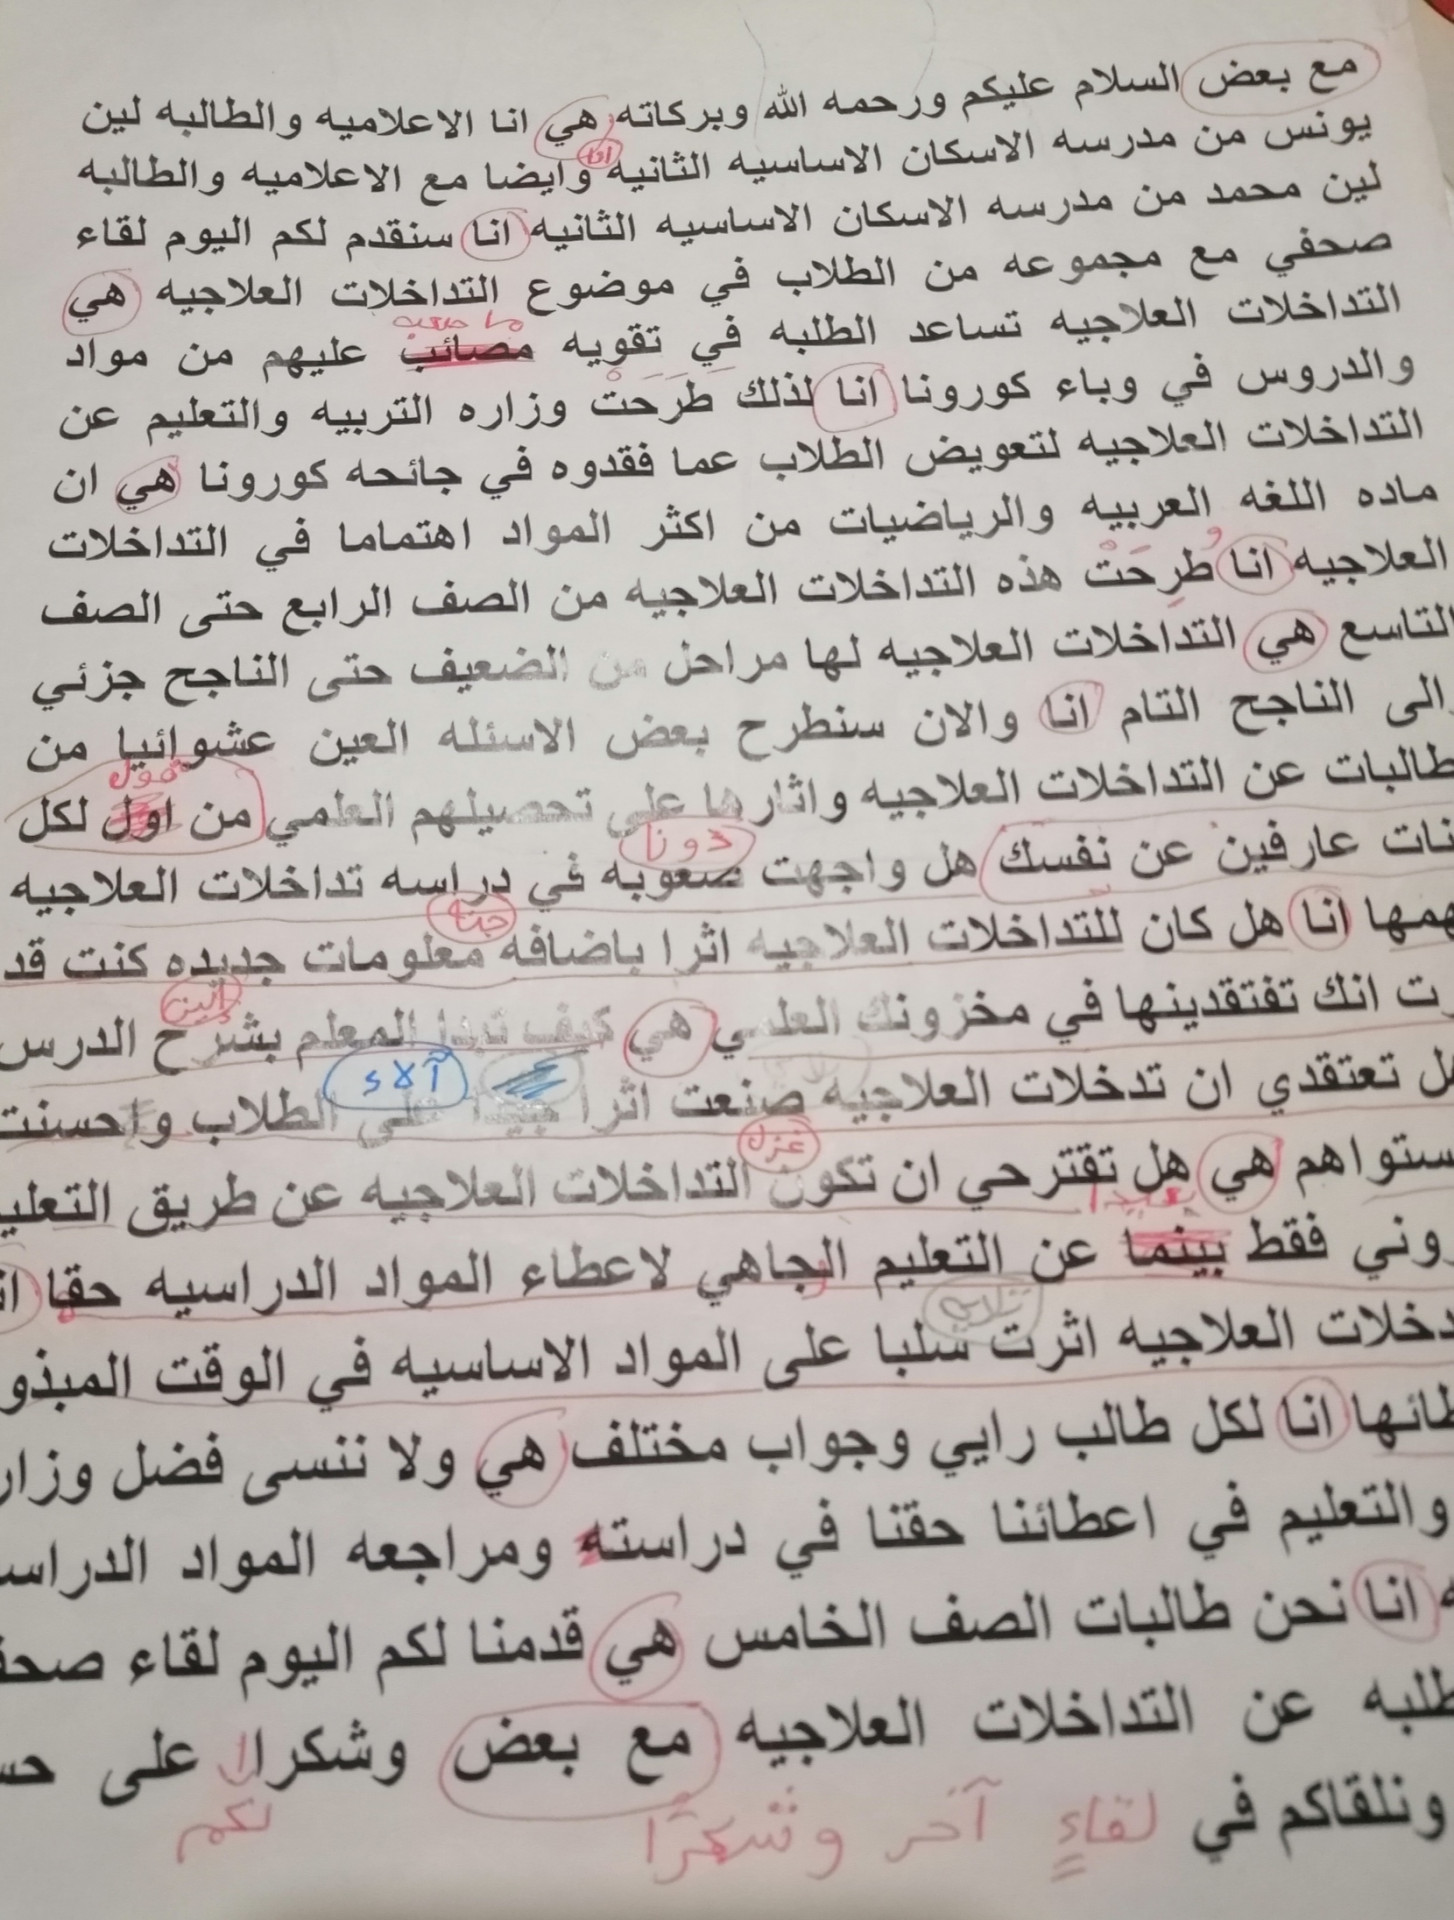 مع بعض السلام عليكم ورحمه الله وبركاته هي انا الاعلاميه والطالبه لين
انا
يونس من مدرسه الاسكان الاساسيه الثانيه وايضا مع الاعلاميه والطالبه
لين محمد من مدرسه الاسكان الاساسيه الثانيه انا سنقدم لكم اليوم لقاء
صحفي مع مجموعه من الطلاب في موضوع التداخلات العلاجيه هي
التداخلات العلاجيه تساعد الطلبه في تقويه مصائب عليهم من مواد
والدروس في وباء كورونا انا لذلك طَرَحَتْ وزاره التربيه والتعليم عن
التداخلات العلاجيه لتعويض الطلاب عما فقدوه في جائحه كورونا هي ان
ماده اللغه العربيه والرياضيات من اكثر المواد اهتماما في التداخلات
العلاجيه انا طُرِحَتْ هذه التداخلات العلاجيه من الصف الرابع حتى الصف
التاسع هي التداخلات العلاجيه لها مراحل من الضعيف حتى الناجح جزئي
الى الناجح التام انا والان سنطرح بعض الاسئله العين عشوائيا من
طالبات عن التداخلات العلاجيه واثارها على تحصيلهم العلمي من اول لكل
عارفين عن نفسك هل واجهت صعوبه في دراسه تداخلات العلاجيه
انا هل كان للتداخلات العلاجيه اثرا باضافه معلومات جديده كنت قد
انك تفتقدينها في مخزونك العلمي هي كيف تبدا المعلم بشرح الدرس
آلاء
تعتقدي ان تدخلات العلاجيه صنعت اثرا جيدا على الطلاب واحسنت
هي هل تقترحي ان تكون التداخلات العلاجيه عن طريق
فقط بينما عن التعليم الجاهي لاعطاء المواد الدراسيه حقا
العلاجيه اثرت سلبا على المواد الاساسيه في الوقت
انا لكل طالب رايي وجواب مختلف هي ولا ننسى فضل
والتعليم في اعطائنا حقنا في دراسته ومراجعه المواد
انا نحن طالبات الصف الخامس هي قدمنا لكم اليوم لقاء
عن التداخلات العلاجيه مع بعض وشكرا على
لكم
ونلقاكم في لقاءٍ آخر وشكرًا